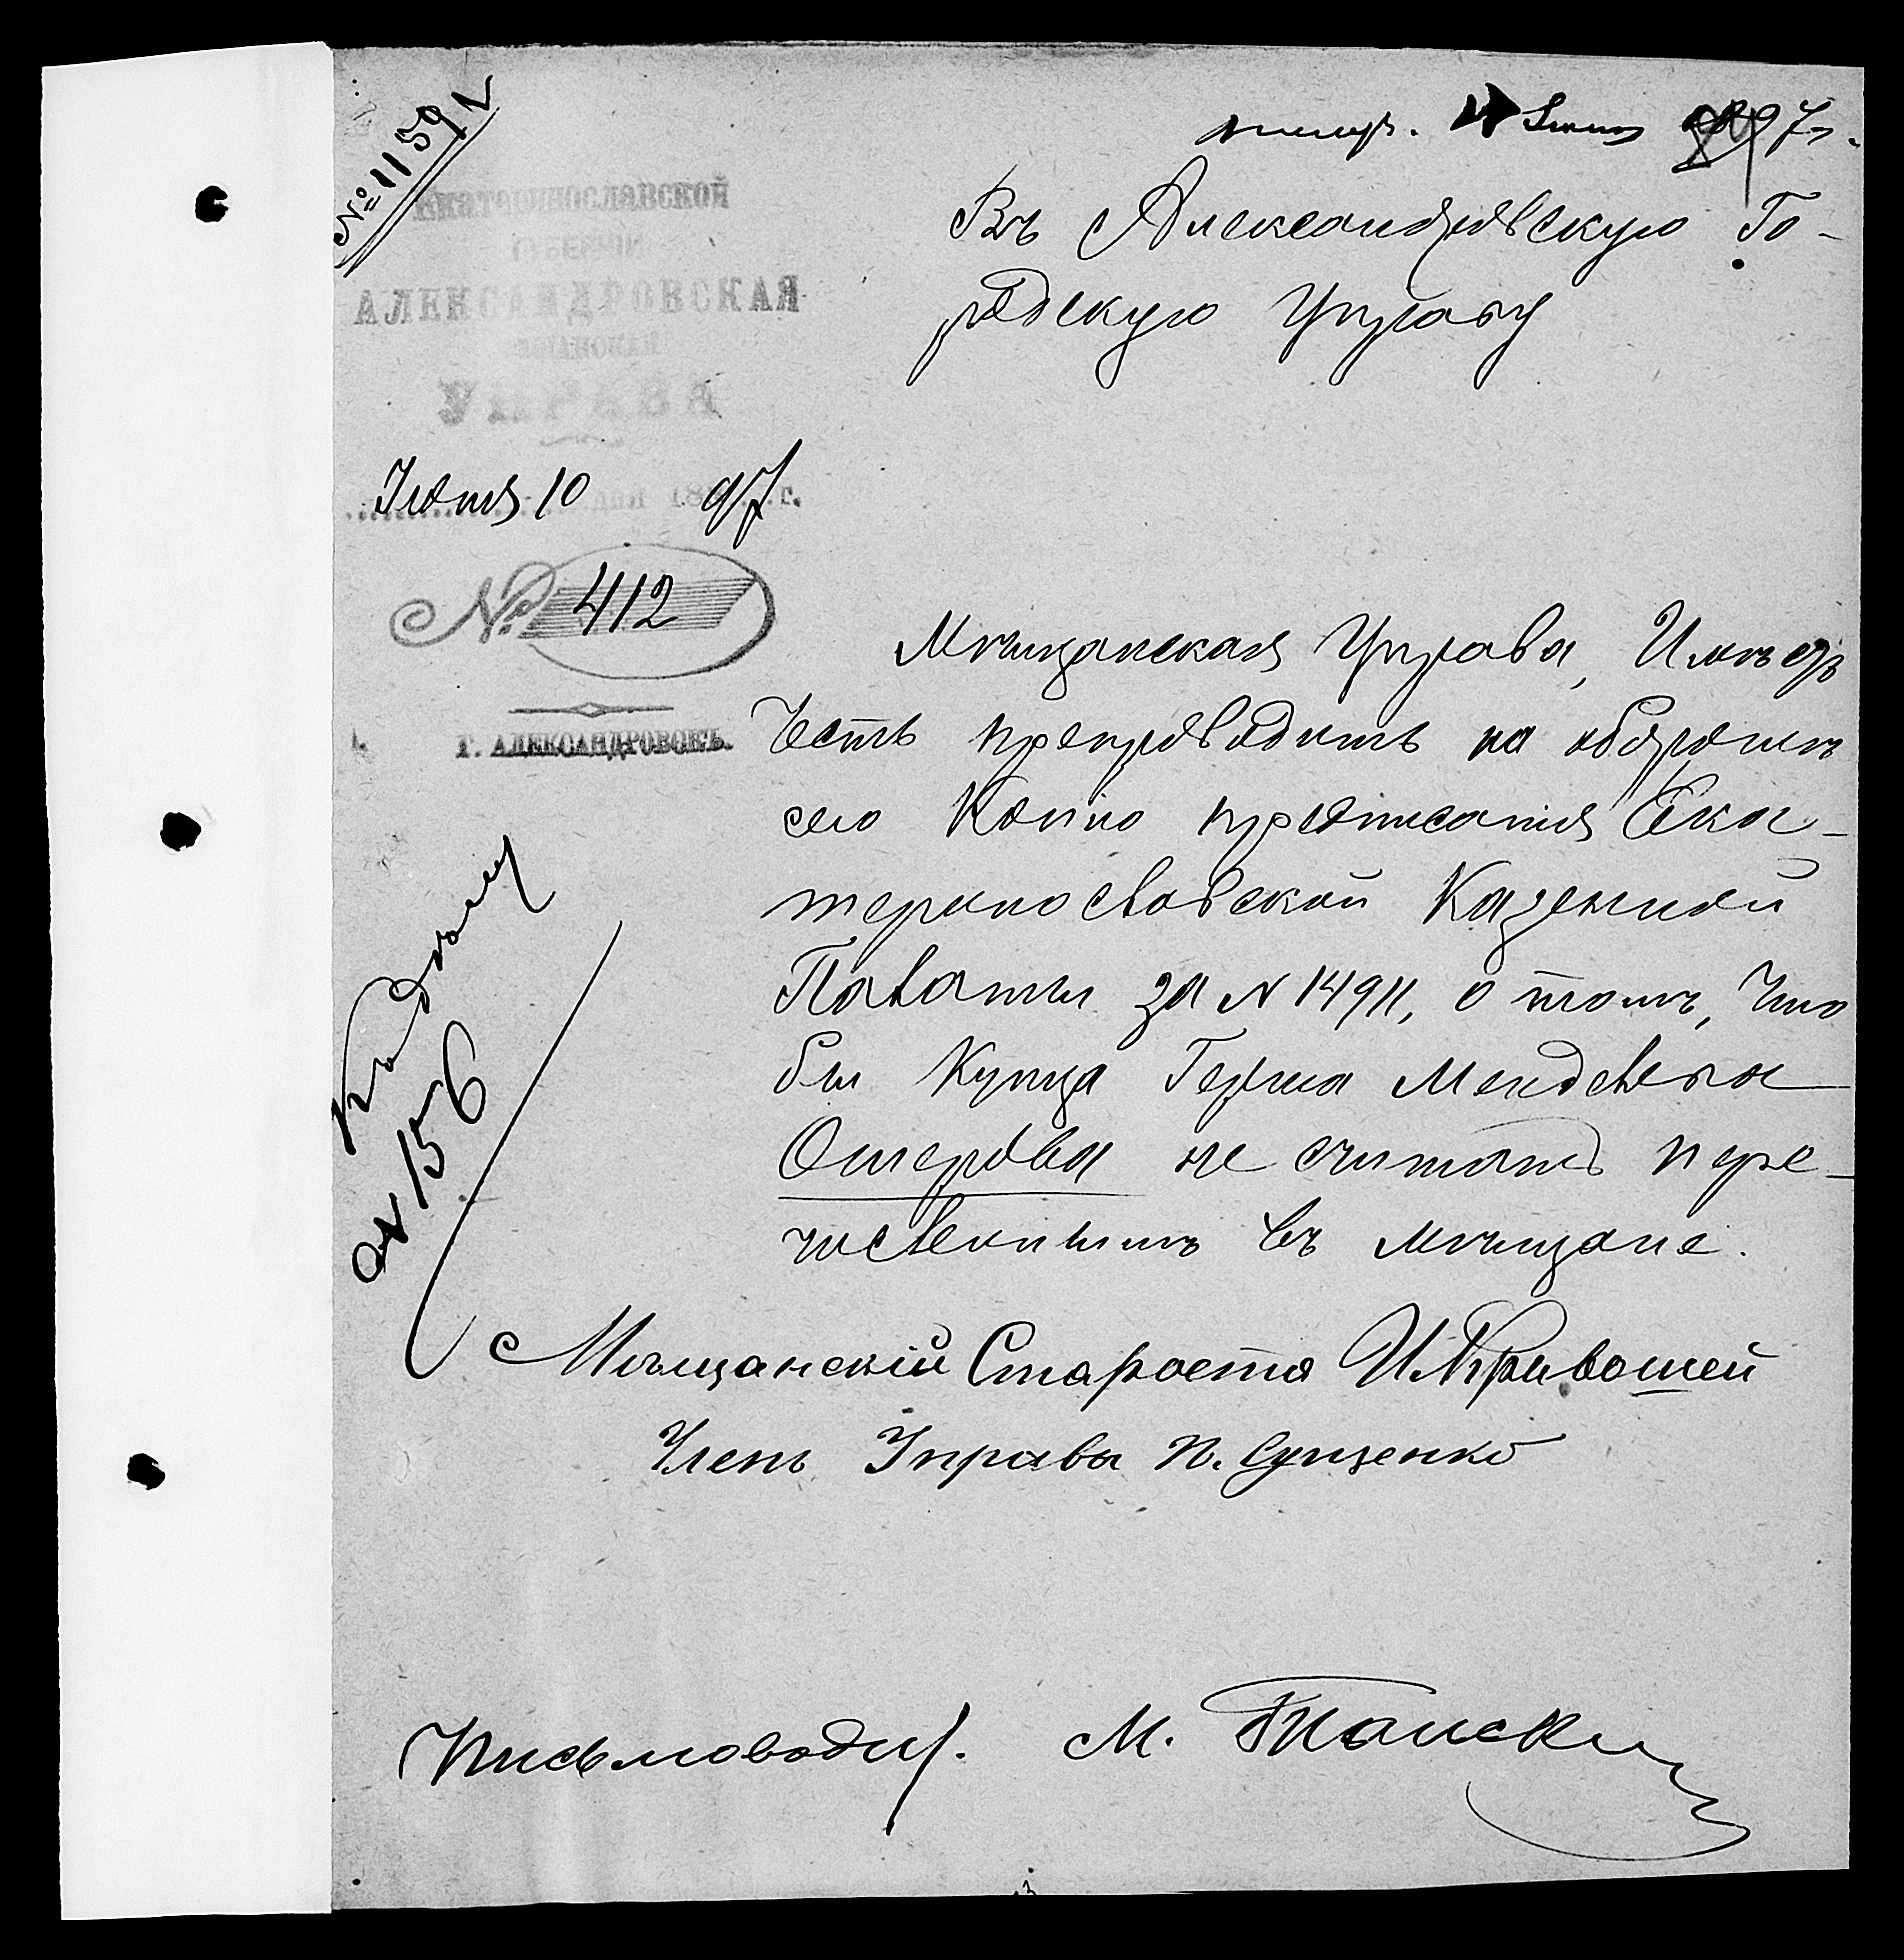 № 1159
получ. Іюня 1897 г.
Екатеринославской
ГУБЕРНІИ
АЛЕКСАНДРОВСКАЯ
МѢЩАНСКАЯ
УПРАВА
Іюня 10 дня 1897 г.
№ 412
Г. АЛЕКСАНДРОВСКЪ.
Въ Александровскую Го-
родскую Управу
Мѣщанская Управа, Имѣетъ
Честь препроводить на оборотѣ
сего Копію предписанія Ека-
теринославской Казенной
Палаты за N 14911, о томъ, Что
бы Купца Герша Менделева
Ошерова не считать пере-
численнымъ въ мѣщане.
Къ дѣлу
N 156
Мѣщанскій Староста И. Кривошей
Членъ Управы П. Сущенко
Письмоводит. М.